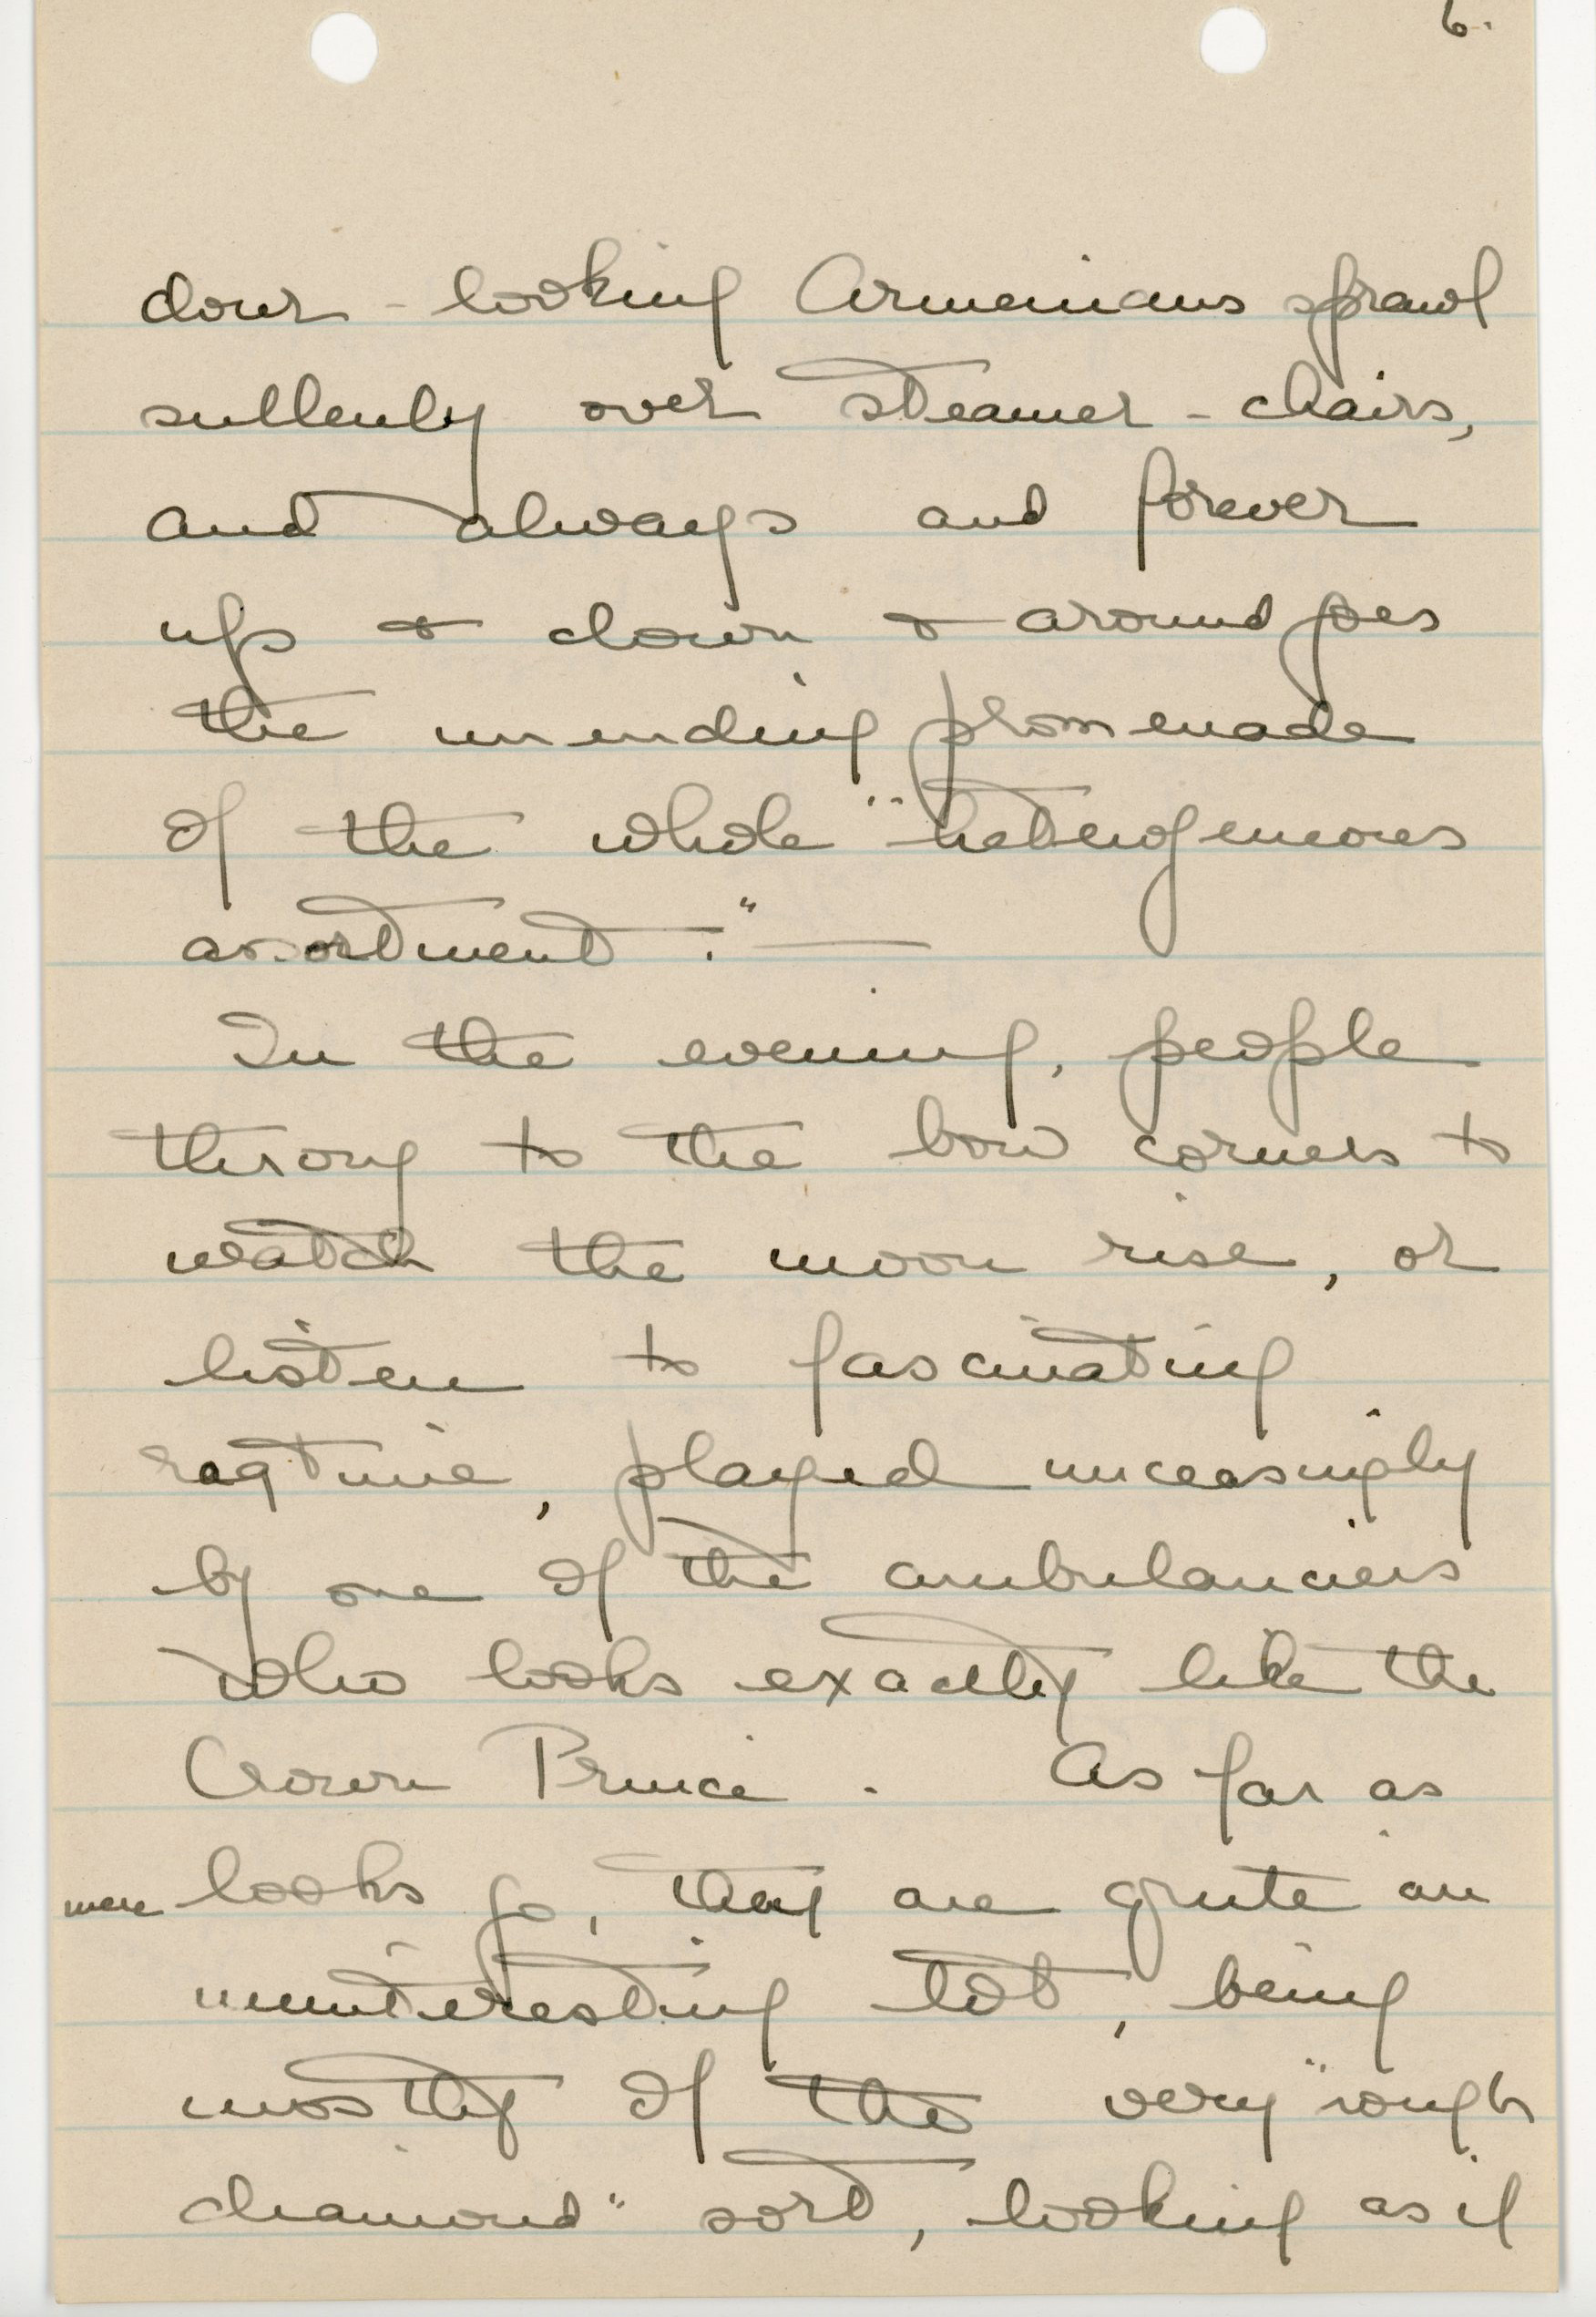 6.
dour-looking Armenians sprawl
sullenly over steamer-chairs,
and always and forever
up & down & around goes
the unending promenade
of the whole "heterogeneous
assortment."—
In the evening, people
throng to the bow corners to
watch the moon rise, or
listen to fascinating
ragtime, played unceasingly
by one of the ambulanciers
who looks exactly like the
Crown Prince. As far as
mere looks go, they are quite an
uninteresting lot, being
mostly of the very "rough
diamond" sort, looking as if